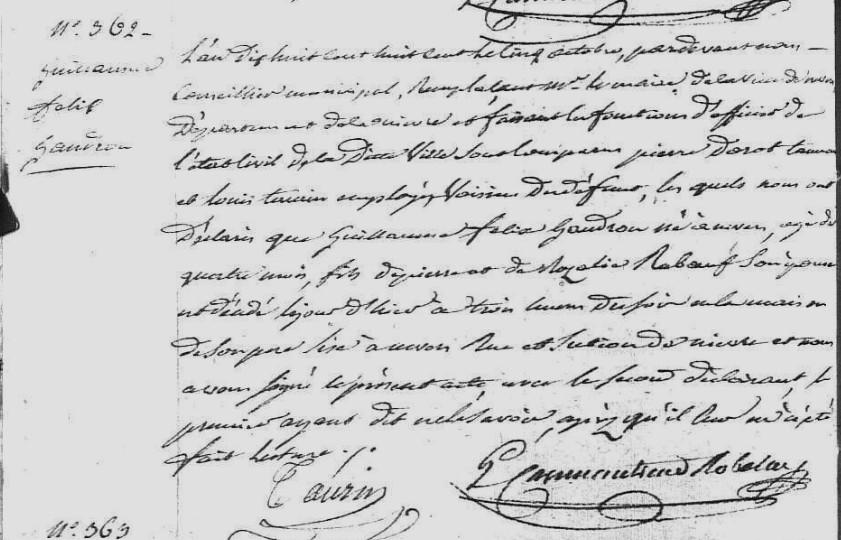 N.° 362 -
Guillaume
felix
Gandrou
L'an Dix huit cent huit cent le cinq octobre, pardevant nous
Conseiller municipal, Remplaçant Mr. le maire de la ville de
Département de la nievre et faisant les fonctions d'officier de
l'état civil de la Ditte Ville sont comparus pierre Dorot
et louis taurin employé, Voisins du défunt, les quels nous ont
Déclaré que Guillaume felix Gandrou né à nevers, agé de
quatre mois, fils de pierre et de Rozalie Rabeuf Son épouse
est décédé le jour d'hier à trois heures du soir en la maison
de Son pere Sise à nevers Rue et Section de nievre et nous
avons signé le présent acte, avec le second déclarant, le
premier ayant dit ne le Savoir, après qu'il leur en a été
fait lecture ./.
Taurin
N.° 363